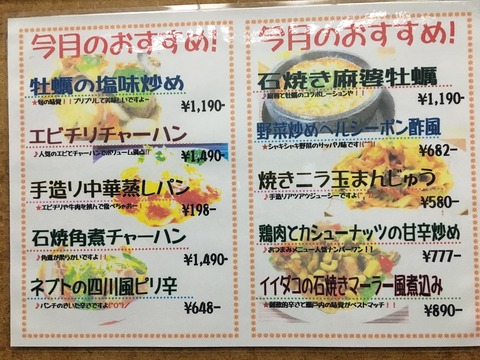 今月のおすすめ!
牡蠣の塩味炒め
¥1,190-
エビチリチャーハン
♪人気のエビとチャーハンでボリューム満点!!
¥1,490-
手造り中華蒸しパン
¥198-
石焼角煮チャーハン
♪角煮が柔らかいですよ!
¥1,490-
ネプトの四川風ピリ辛
♪パンチのきいた辛さですよ!
¥648-
今月のおすすめ!
石焼き麻婆牡蠣
¥1,190-
野菜炒めヘルシーポン酢風
★シャキシャキ野菜のサッパリ味です!
¥682-
焼きニラ玉まんじゅう
♪手造りアツアツジューシーですよ!
¥580-
鶏肉とカシューナッツの甘辛炒め
♪おつまみメニュー人気ナンバーワン!!
¥777-
イイダコの石焼きマーラー風煮込み
★刺激的辛さと瀬戸内の味覚がベストマッチ!!
¥890-